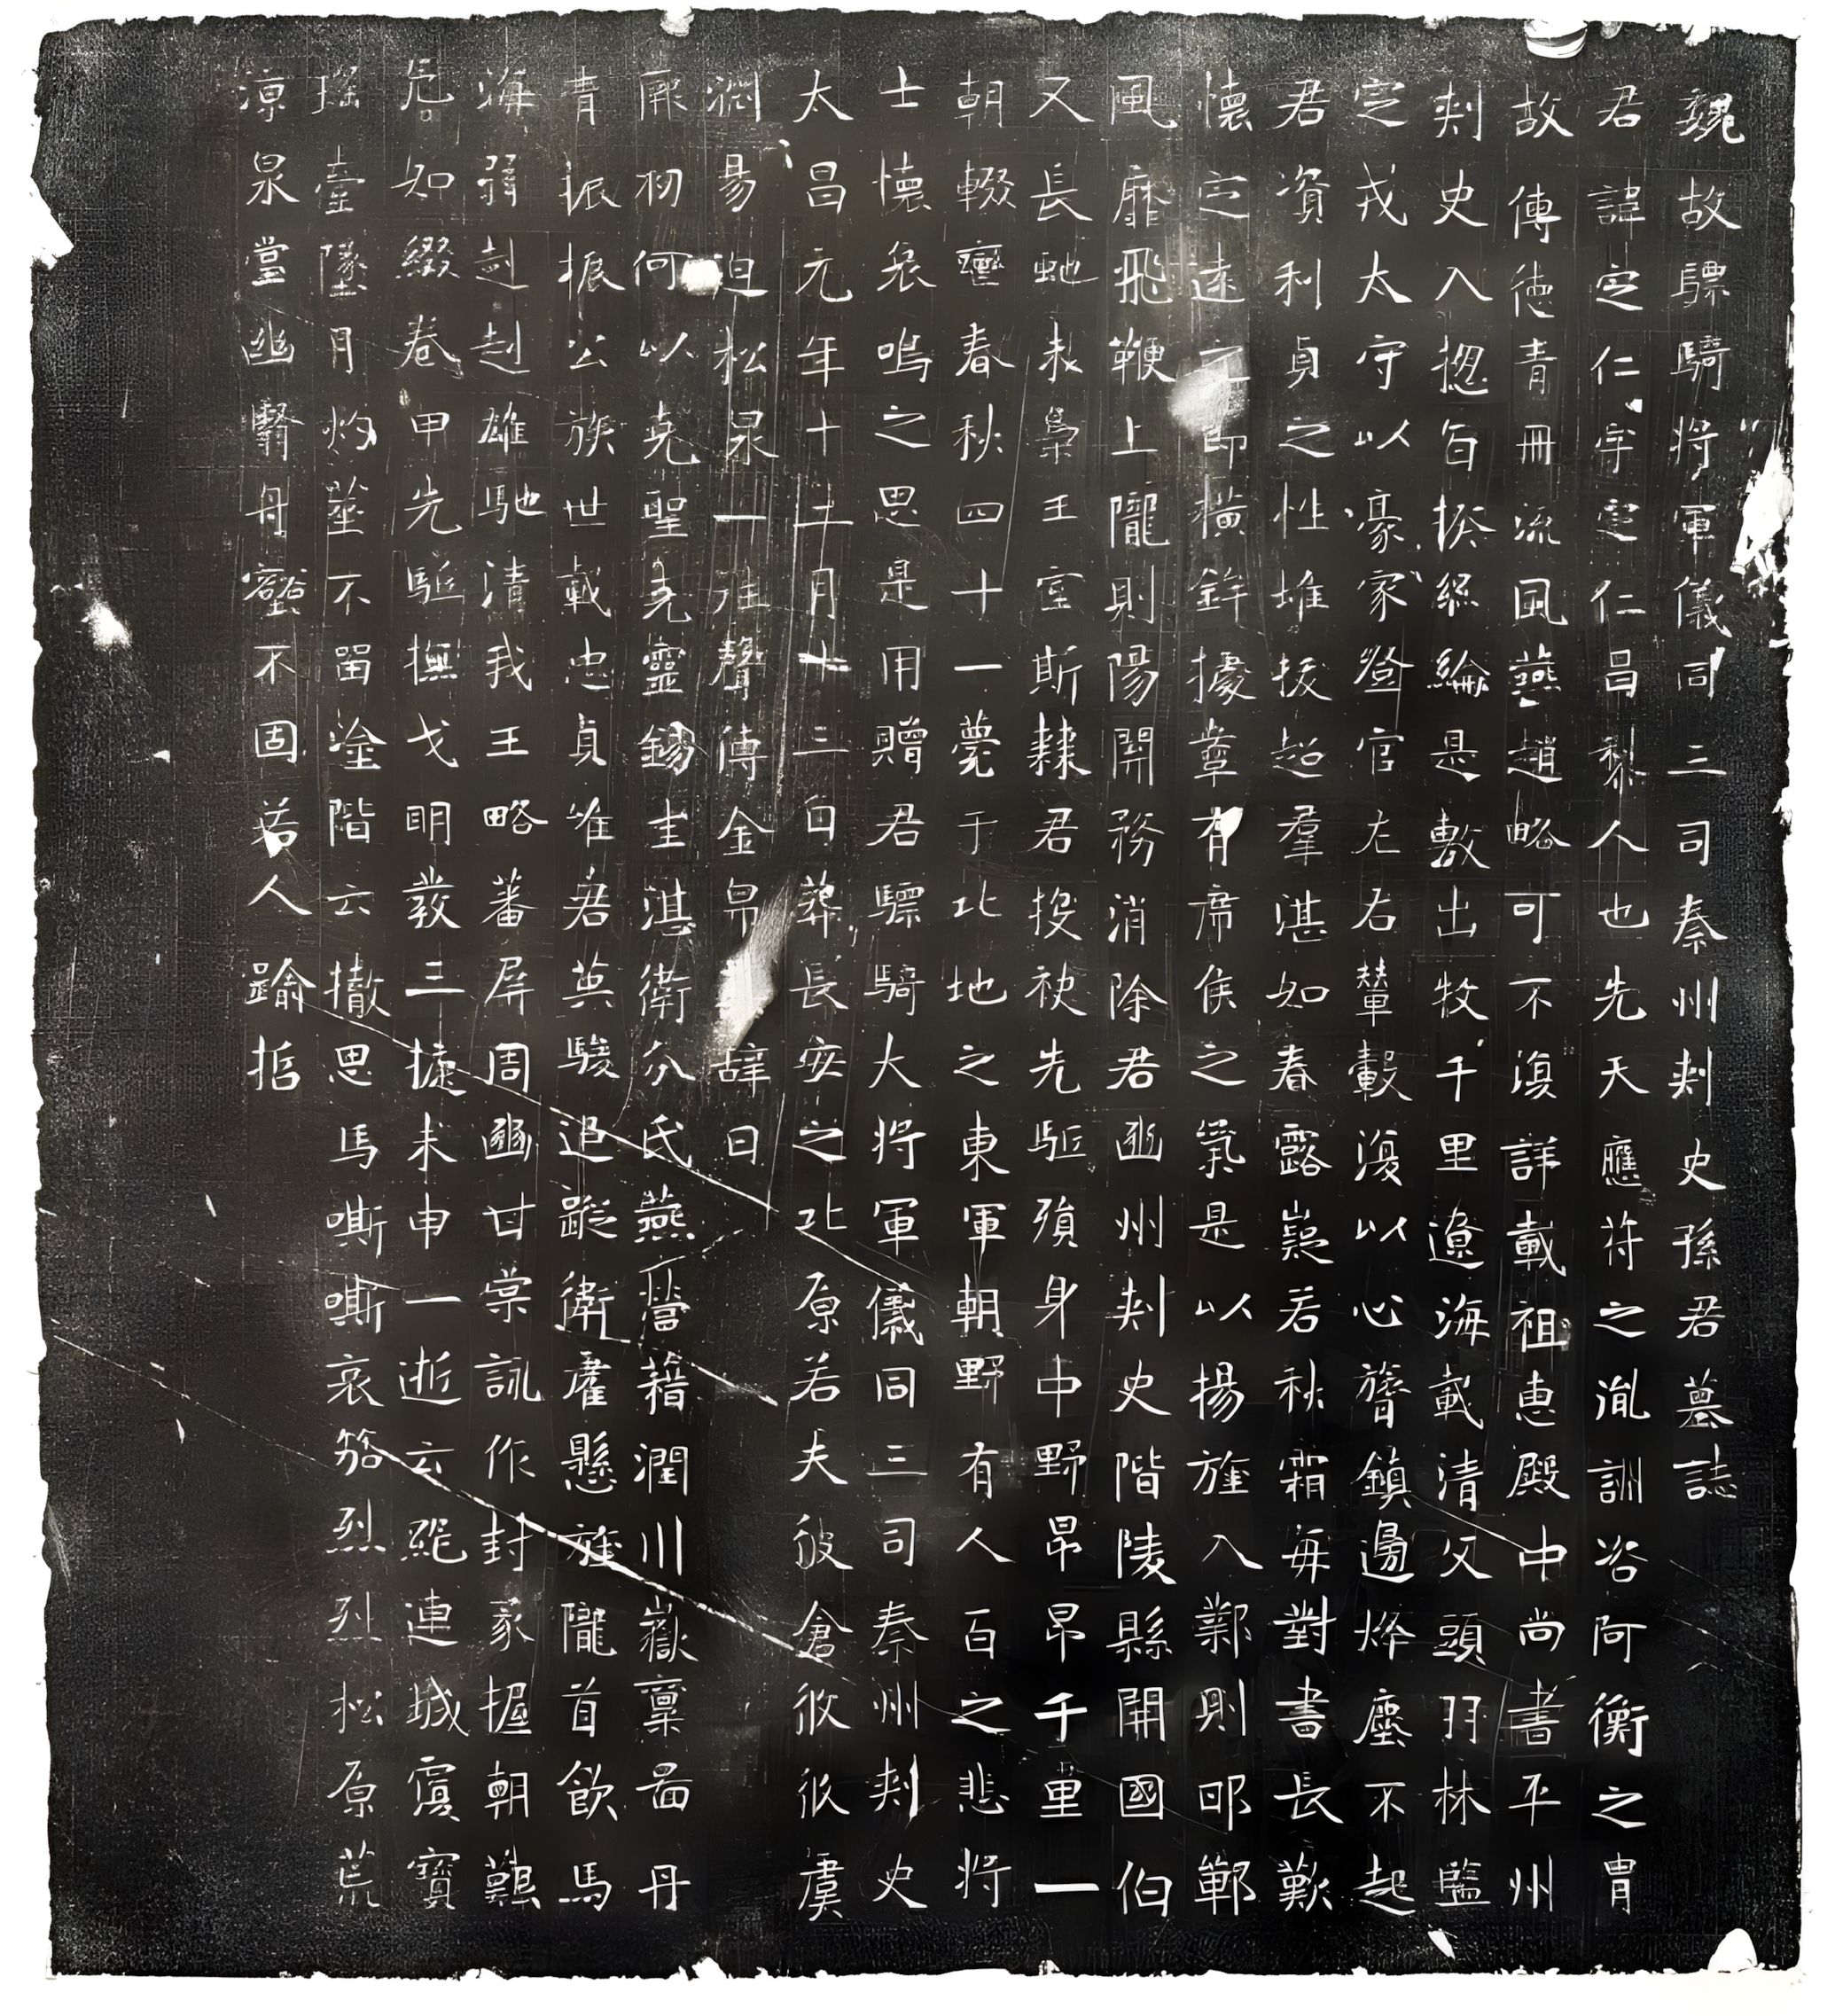 魏故驃騎將軍儀同三司秦州刺史孫君墓誌
君諱定仁字定仁昌黎人也先天應符之胤訓咨阿衡之胄
故傳德青冊流風燕趙略可不復詳載祖惠殿中尚書平州
刺史入揔百揆絲綸是敷出牧千里遼海載清父頭羽林監
定戎太守以豪家登官左右輦轂復以心膂鎮邊烽塵不起
君資利貞之性堆拔超羣湛如春露嶷若秋霜每對書長歎
懷定遠之節橫鉾據鞌有席侯之氣是以揚旌入鄴則邯鄲
風靡飛鞭上隴則陽關務消除君豳州刺史階陵縣開國伯
又長虵未梟王室斯隸君投袂先駈殞身中野昂昂千里一
朝輟鑾春秋四十一薨于北地之東軍朝野有人百之悲將
士懷哀鳴之思是用贈君驃騎大將軍儀同三司秦州刺史
太昌元年十二月十三日葬長安之北原若夫彼倉攸攸虞
淵易迫松泉一雍聲傳金帛 辭曰
厥初何以堯聖堯靈錫圭湛衛分氏燕營藉潤川嶽稟晝丹
青振振公族世載忠貞唯君英駿追蹤衛霍懸旌隴首飲馬
海弱赳赳雄馳清我王略蕃屏周豳甘棠詠作封豕握朝艱
危如綴卷甲先駈撫戈明發三捷未申一逝云絕連城寢寶
瑤臺墜月灼莖不留塗階云撤思馬嘶嘶哀笳烈烈松原荒
涼泉堂幽翳舟壑不固若人踰哲